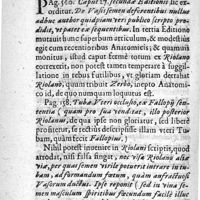 Pag. 560. Caput 27. secundæ Editionis sic ex-
orditur. De Vasis semen deferentibus nullus
adhuc author quidpiam rei publico scripto prodi-
dit, ut patet ex sequentibus. In tertia Editione
mutavit hunc superbum articulum, & modestiùs
egit cum recentioribus Anatomicis; & quamuis
monitus, illud caput fermè totum ex Riolano
correxerit, non potest tamen temperare à suggil-
latione in rebus futilibus, ut gloriam detrahat
Riolano, quam tribuit Zerbo, inepto Anatomi-
co, id de quo nunquam loquutus est.
Pag. 158. Tuba Uteri occluso, ex Fallopij sen-
tentia ( quam pro sua venditat, illo posterior
Riolanus, de qua ipse non gloriatur, sed liberè
profitetur, se rectiùs descripsisse illam uteri Tu-
bam, quàm fecit Fallopius.
Nihil potest invenire in Riolani scriptis, quod
arrodat, nisi falsis singat; nec visa Riolano alia
via, per quam semen virile peruenit intrare in tu-
bam, ad formandum fœtum, quàm anfractuosi
Vasorum ductus. Ipse reponit ( sed in vina se-
men masculum spirituosum fœcundum facilè illuc